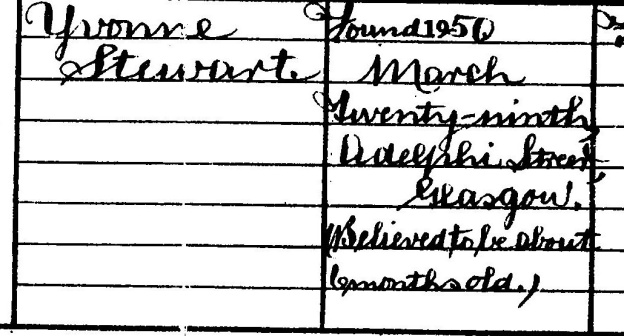 Yvonne
Stewart.
Found 1950
March
Twenty-ninth,
Adelphi Street,
Glasgow.
(Believed to be about
6 months old.)